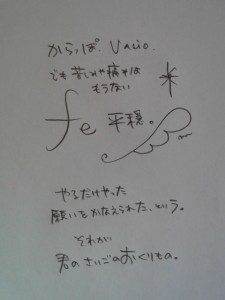 からっぽ. Vacio.
でも苦しみや痛みは
もうない
fe 平穏。
やるだけやった
願いをかなえられた、という。
それが
君のさいごのおくりもの。